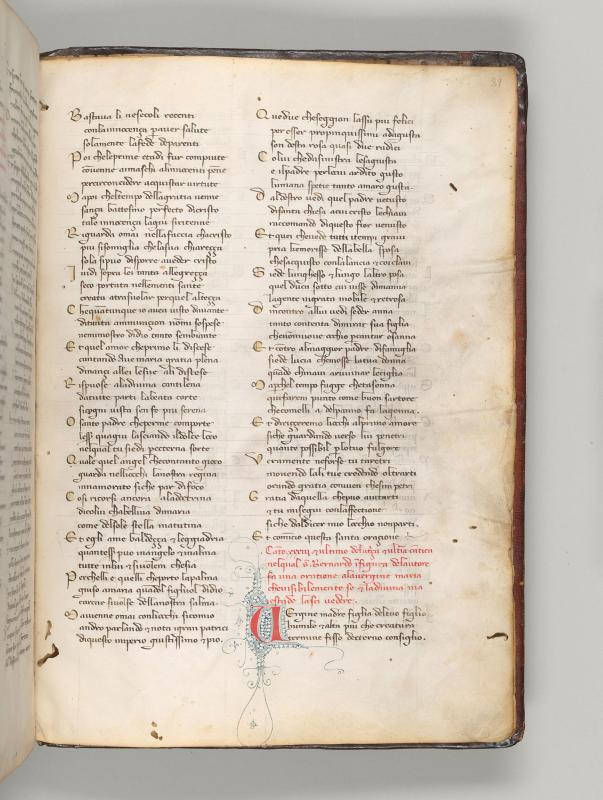 Bastaua li nesecoli recenti
conlainnocença p auer salute
solamente lafede deparenti
Poi cheleprime etadi fur compiute
conuenne amaschi alinnocenti penne
percirconcidere acquistar uirtute
Mapoi cheltempo dellagratia uenne
sança battesmo perfecto dicristo
tale innocença laqiu siritenne
Riguarda omai nellafaccia chacristo
piu sisomiglia chelasua chiareçça
sola sipuo disporre aueder cristo
Iuidi sopra lei tanta allegreçça
seco portata nellementi sante
create atrasuolar perquel alteçça
Chequatunque io auea uisto dauante
ditanta ammiraçion nomi sospese
nemimostro didio tanto sembiante
Et quel amor cheprimo li discese
cantando Aue maria gratia plena
dinançi allei lesue ali distese
Rispuose aladiuina cantilena
datutte parti labeata corte
sicogni uista sen fe piu serena
O santo padre cheperme comporte
lesser quagiu lasciando ildolce loco
nelqual tu siedi pecterna sorte
Quale quel angel checontanto gioco
guarda nelliocchi lanostra regina
innamorato siche par difoco
Cosi ricorsi ancora aladoctrina
dicolui chabelliua dimaria
come delsole stella matutina
Et egli ame baldeçça & leggiadria
quantesser puo inangelo & inalma
tutte inlui & siuolem chesia
Perchelli e quelli cheporto lapalma
giuso amaria quadol figliuol didio
carcar siuolse dellanostra salma
Mauenne omai conliocchi sicomio
andro parlando & nota igran patrici
diquesto imperio giustissimo & pio.
Quedue cheseggion lassu piu felici
per esser propinquissimi adagusta
son desta rosa quasi due radici
Colui chedasinistra lesagiusta
e ilpadre perlocui ardito gusto
lumana spetie tanto amaro gusta
Daldestro uedi quel padre uetusto
disanta chiesa acui cristo lechiaui
raccomando diquesto fior uenusto
Et quei cheuide tutti itempi graui
pria kemorisse dellabella sposa
chesacquisto conlalancia & coiclaui
Siede lunghesso & lungo laltro posa
quel duca sotto cui uisse dimanna
lagente ingrata mobile & retrosa
Dincontro allui uedi seder anna
tanto contenta dimirar sua figlia
chenonmuoue occhio pcantar osanna
Et cotro almaggior padre difamiglia
siede lucia chemosse latua donna
quado chinaui aruuinar leciglia
Maperchel tempo fugge chetasonna
quifarem punto come buon sartore
checomelli a delpanno fa lagonna.
Et diriçeremo liocchi alprimo amore
siche guardando uerso lui penetri
quante possibil plosuo fulgore
Veramente neforse tu taretri
mouendo lali tue credendo oltrarti
orando gratia conuien chesim petri
Gratia daquella chepuo aiutarti
& tu misegui conlaffectione
siche daldicer mio locchio nonparti.
Et comicio questa santa oratione
Cato. xxxiij. & ultimo delatça & ultia cantica
nelqual s. Bernardo ifigura delautore
fa una oratione alauergine maria
cheuisibilemente se & ladiuina ma
iestade lasci uedere.
Vergine madre figlia deltuo figlio
humile & alta piu che creatura
termine fisso decterno consiglio.